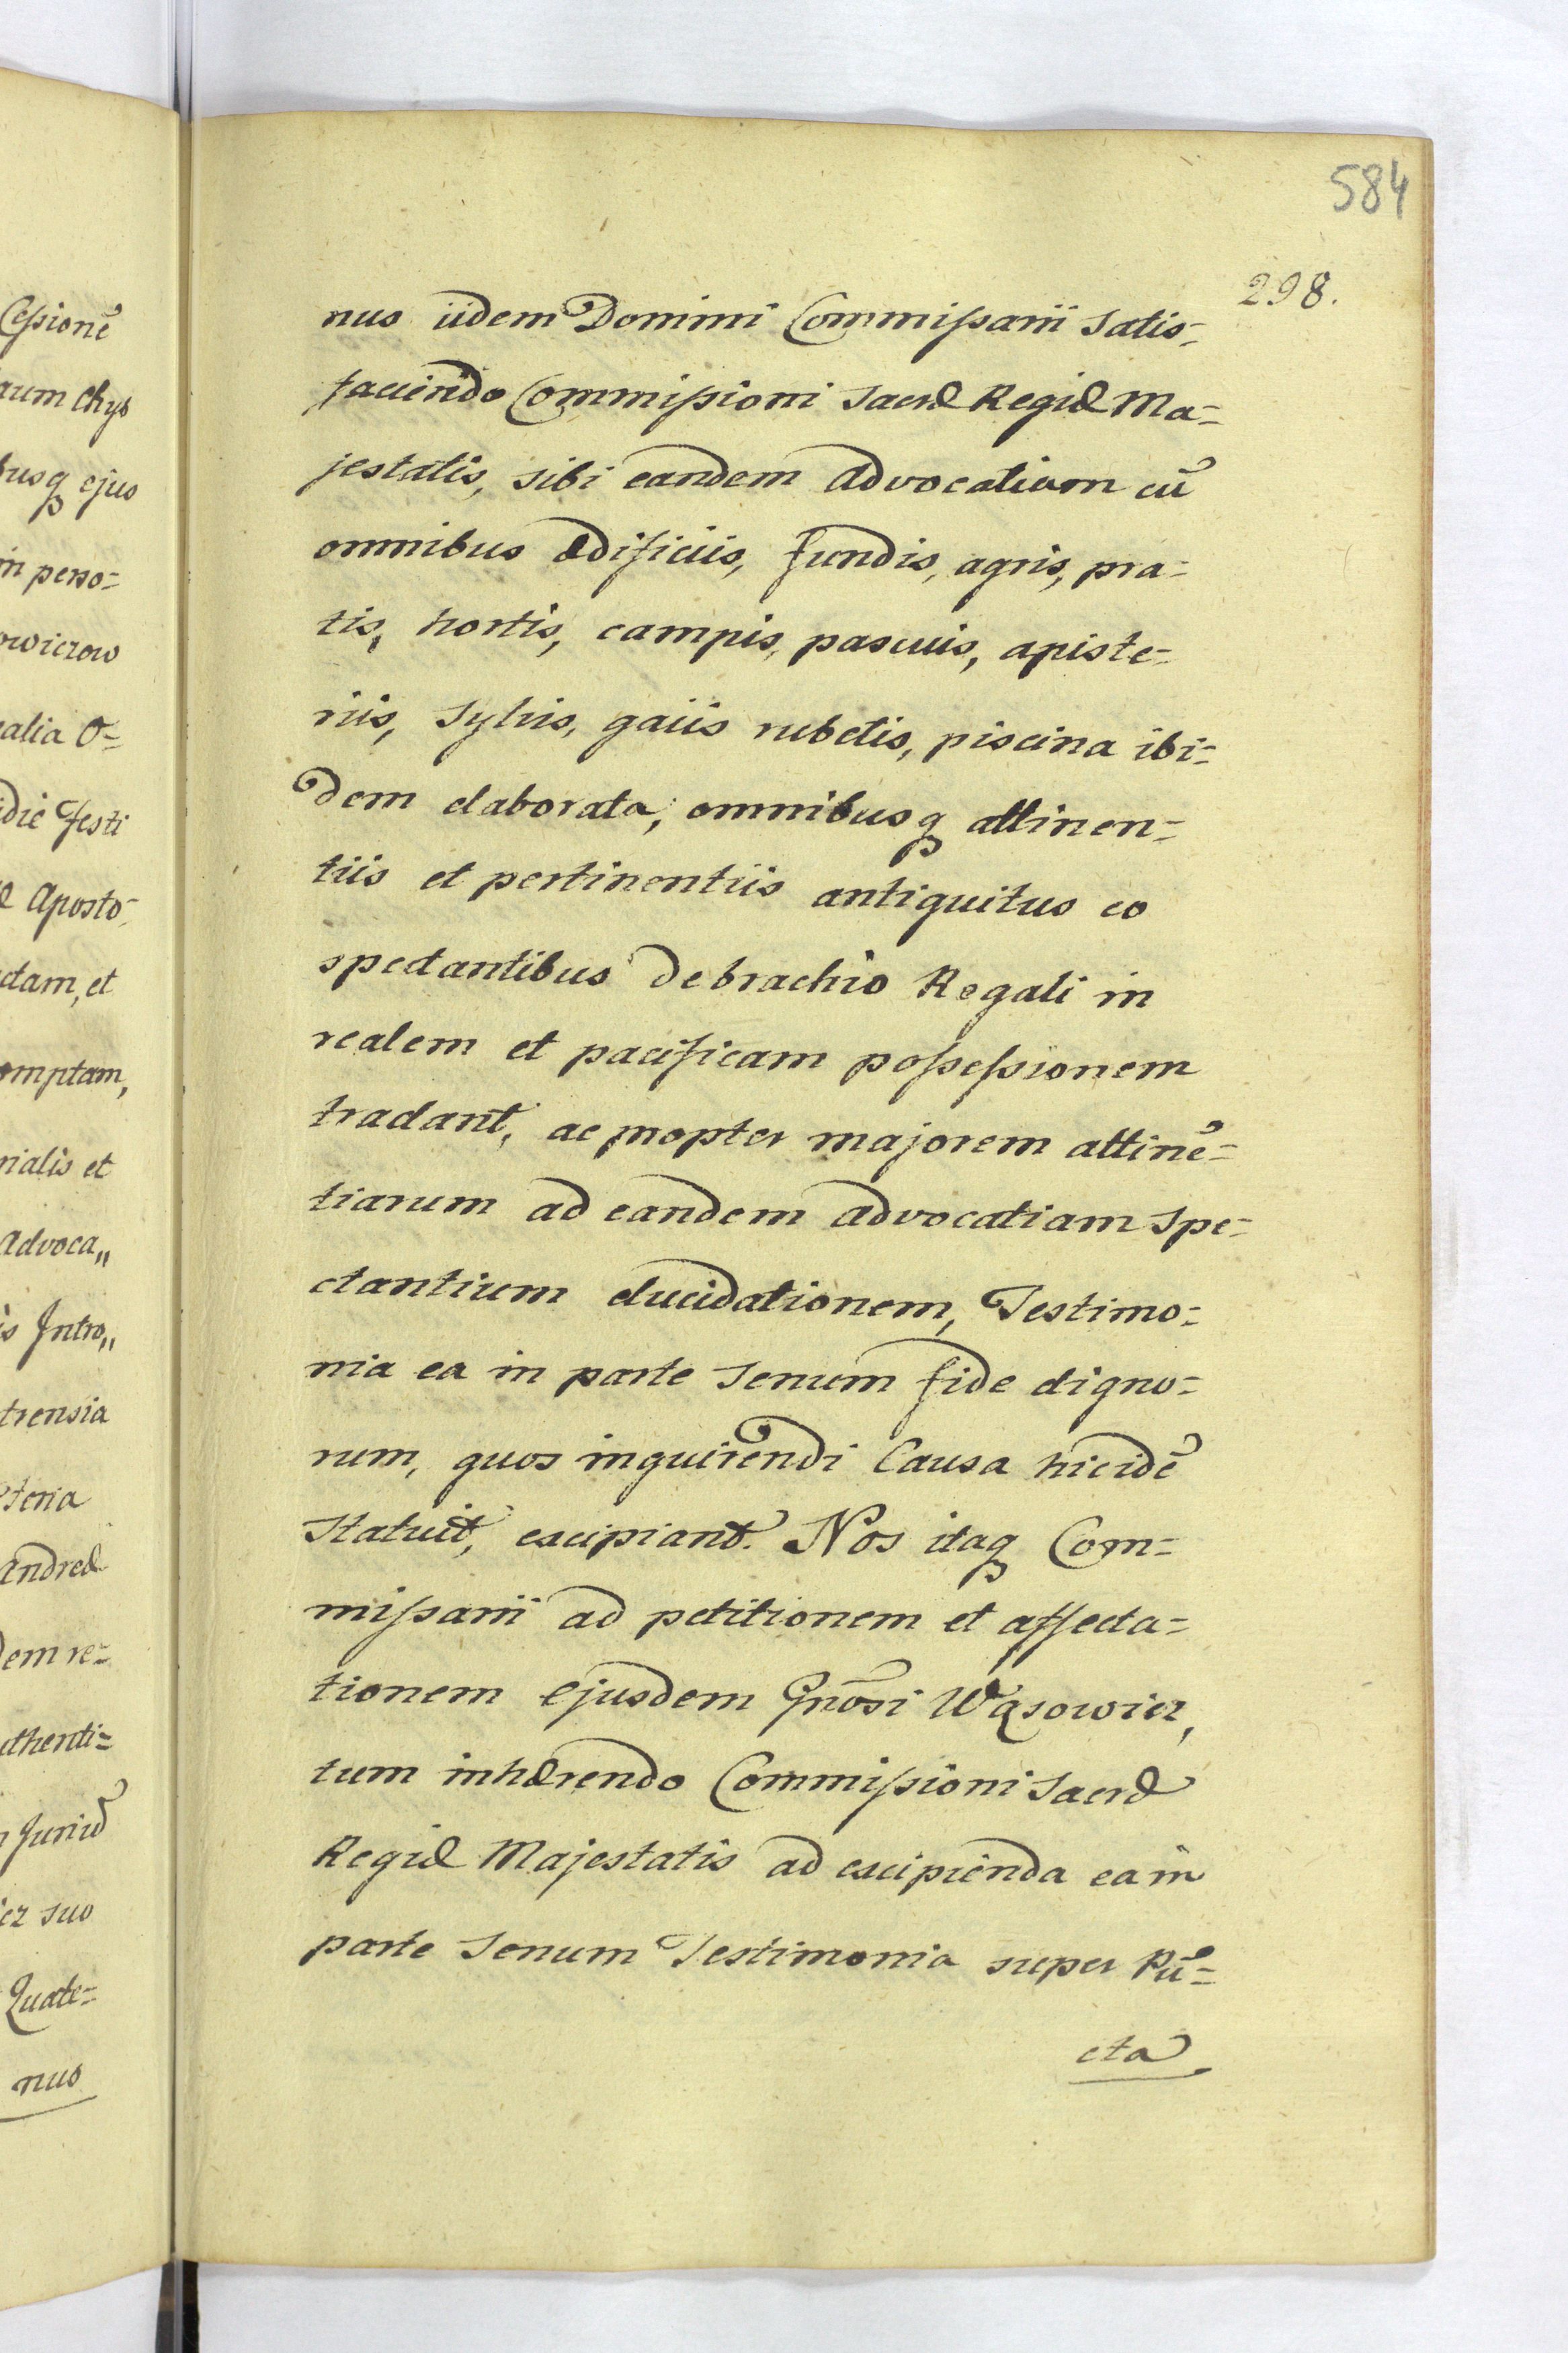 584
298.
nus iidem Domini Commissarii Satis-
faciendo Commissioni Sacræ Regiæ Ma-
jestatis, sibi eandem advocatiam cū
omnibus ædificiis, fundis, agris, pra-
tis, hortis, campis, pascuis, apiste-
riis, Sylvis, gaiis rubetis, piscina ibi-
dem elaborata, omnibusq attinen-
tiis et pertinentiis antiquitus eo
spectantibus de brachio Regali in
realem et pacificam possessionem
tradant, ac propter majorem attinē-
tiarum ad eandem advocatiam Spe-
ctantium elucidationem, Testimo-
nia ea in parte Senum fide digno-
rum, quos inquirendi Causa hicidē
Statuit, excipiant. Nos itaq Com-
missarii ad petitionem et affecta-
tionem ejusdem Gnōsi Wąsowicz,
tum inhærendo Commissioni Sacræ
Regiæ Majestatis ad excipienda ea in
parte Senum Testimonia super Pū-
cta
Cessionē
arum Chys
busq ejus
in perso-
owiczow
ealia O-
idie Festi
æ Aposto-
ctam, et
omptam,
rialis et
Advoca„
is Intro„
trensia
steria
Andreæ
dem re-
uthenti-
cz suo
Quate-
nus